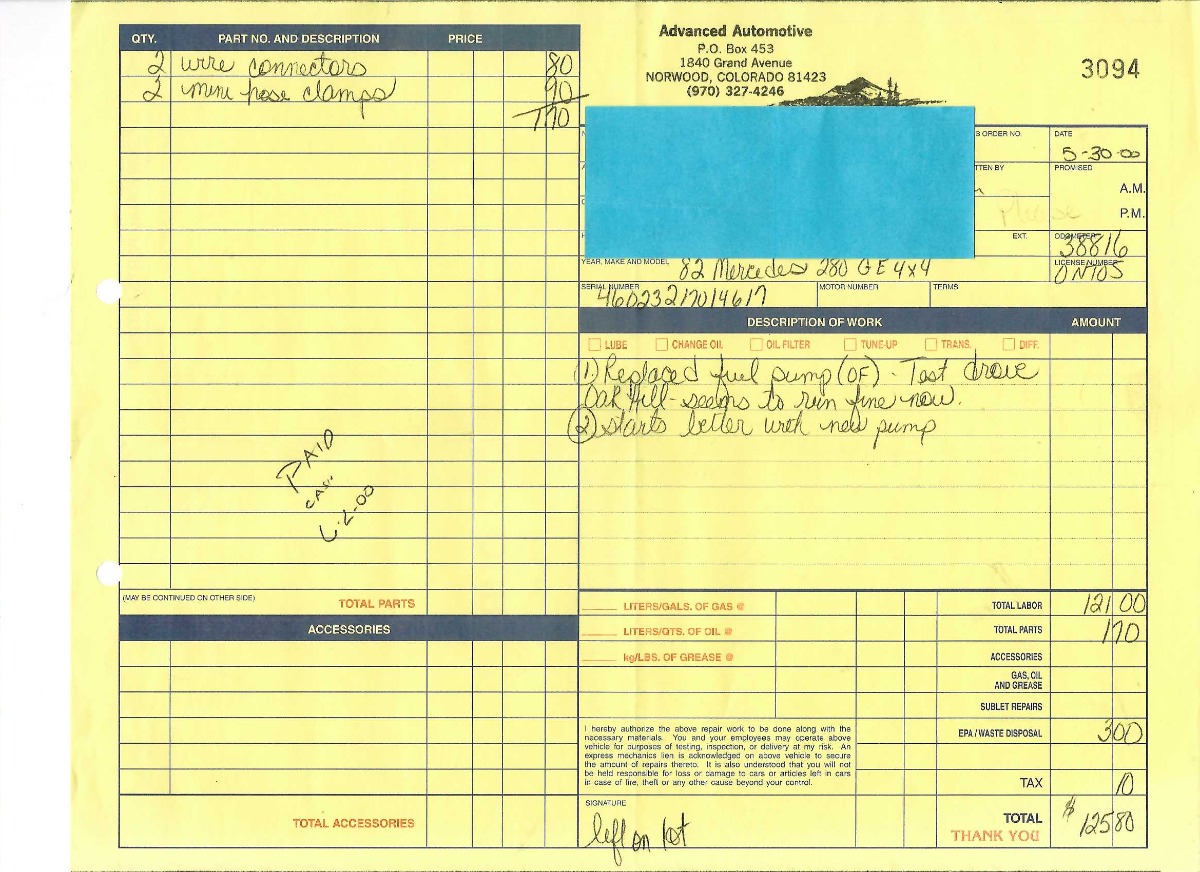 QTY. PART NO. AND DESCRIPTION PRICE
2 wire connectors 80
2 mini hose clamps 90
170
PAID
CASH
6-2-00
(MAY BE CONTINUED ON OTHER SIDE) TOTAL PARTS
ACCESSORIES
TOTAL ACCESSORIES
Advanced Automotive
P.O. Box 453
1840 Grand Avenue
NORWOOD, COLORADO 81423
(970) 327-4246
3094
ORDER NO. DATE
5-30-00
BY PROMISED
A.M.
Please P.M.
EXT. ODOMETER
38816
YEAR, MAKE AND MODEL 82 Mercedes 280 GE 4x4 LICENSE NUMBER
SERIAL NUMBER 46023217014617 MOTOR NUMBER TERMS
DESCRIPTION OF WORK AMOUNT
LUBE CHANGE OIL OIL FILTER TUNE-UP TRANS. DIFF.
(1) Replaced fuel pump (OF) - Test drove
Hill - seems to run fine now.
(2) starts better with new pump
LITERS/GALS. OF GAS @ TOTAL LABOR 121 00
LITERS/QTS. OF OIL @ TOTAL PARTS 1 70
kg/LBS. OF GREASE @ ACCESSORIES
GAS, OIL
AND GREASE
SUBLET REPAIRS
I hereby authorize the above repair work to be done along with the
necessary materials. You and your employees may operate above
vehicle for purposes of testing, inspection, or delivery at my risk. An
express mechanics lien is acknowledged on above vehicle to secure
the amount of repairs thereto. It is also understood that you will not
be held responsible for loss or damage to cars or articles left in cars
in case of fire, theft or any other cause beyond your control.
EPA / WASTE DISPOSAL 3 00
TAX 10
SIGNATURE
left on lot
TOTAL $ 125 80
THANK YOU